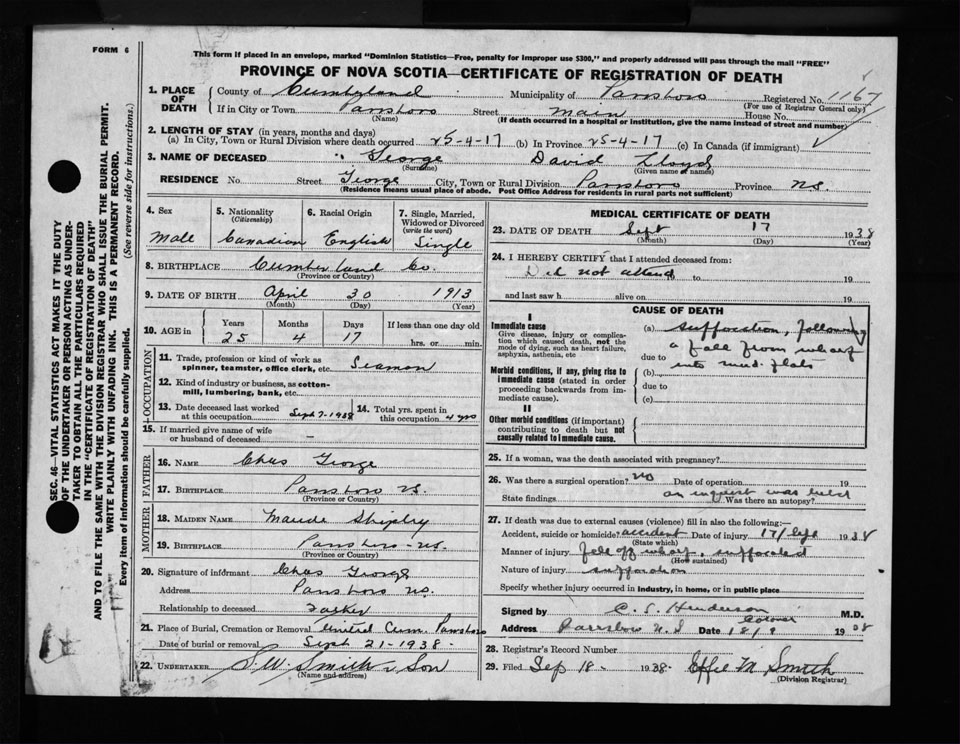 FORM 6
This form if placed in an envelope, marked "Dominion Statistics—Free, penalty for improper use $300," and properly addressed will pass through the mail "FREE"
PROVINCE OF NOVA SCOTIA—CERTIFICATE OF REGISTRATION OF DEATH
1. PLACE OF DEATH
County of Cumberland Municipality of Parrsboro Registered No. 1167
(For use of Registrar General only)
If in City or Town Parrsboro Street Main House No.
(Name) (If death occurred in a hospital or institution, give the name instead of street and number)
2. LENGTH OF STAY (in years, months and days)
(a) In City, Town or Rural Division where death occurred 25-4-17 (b) In Province 25-4-17 (c) In Canada (if immigrant)
3. NAME OF DECEASED George David Lloyd
(Surname) (Given name or names)
RESIDENCE No. Street George City, Town or Rural Division Parrsboro Province N.S.
(Residence means usual place of abode. Post Office Address for residents in rural parts not sufficient)
4. Sex
Male
5. Nationality
(Citizenship)
Canadian
6. Racial Origin
English
7. Single, Married, Widowed or Divorced
(write the word)
Single
8. BIRTHPLACE Cumberland Co.
(Province or Country)
9. DATE OF BIRTH April 30 1913
(Month) (Day) (Year)
10. AGE in
Years Months Days If less than one day old
25 4 17 hrs. or min.
OCCUPATION
11. Trade, profession or kind of work as
spinner, teamster, office clerk, etc. Seaman
12. Kind of industry or business, as cotton-
mill, lumbering, bank, etc.
13. Date deceased last worked
at this occupation Sept 7-1938
14. Total yrs. spent in
this occupation 4 yrs
15. If married give name of wife
or husband of deceased —
FATHER
16. NAME Chas George
17. BIRTHPLACE Parrsboro N.S.
(Province or Country)
MOTHER
18. MAIDEN NAME Maude Shipley
19. BIRTHPLACE Parrsboro - N.S.
(Province or Country)
20. Signature of informant Chas George
Address Parrsboro N.S.
Relationship to deceased Father
21. Place of Burial, Cremation or Removal United Cem. Parrsboro
Date of burial or removal Sept 21-1938-
22. UNDERTAKER S.W. Smith & Son
(Name and address)
MEDICAL CERTIFICATE OF DEATH
23. DATE OF DEATH Sept 17 1938
(Month) (Day) (Year)
24. I HEREBY CERTIFY that I attended deceased from:
Did not attend 19 to 19
and last saw h alive on 19
CAUSE OF DEATH
I
Immediate cause
Give disease, injury or complica-
tion which caused death, not the
mode of dying, such as heart failure,
asphyxia, asthenia, etc
(a) suffocation, following
a fall from wharf
due to
into mud flats
Morbid conditions, if any, giving rise to
immediate cause (stated in order
proceeding backwards from im-
mediate cause).
(b)
due to
(c)
II
Other morbid conditions (if important)
contributing to death but not
causally related to immediate cause.
25. If a woman, was the death associated with pregnancy?
26. Was there a surgical operation? No Date of operation 19
State findings an inquest was held
Was there an autopsy?
27. If death was due to external causes (violence) fill in also the following:—
Accident, suicide or homicide? accident Date of injury 17/Sept 1938
(State which)
Manner of injury fell off wharf, suffocated
(How sustained)
Nature of injury suffocation
Specify whether injury occurred in industry, in home, or in public place
Signed by C. S. Henderson M.D.
Coroner
Address Parrsboro N.S Date 18/9 1938
28. Registrar's Record Number
29. Filed Sep 18- 1938- Effie M Smith
(Division Registrar)
SEC. 46—VITAL STATISTICS ACT MAKES IT THE DUTY
OF THE UNDERTAKER OR PERSON ACTING AS UNDER-
TAKER TO OBTAIN ALL THE PARTICULARS REQUIRED
IN THE "CERTIFICATE OF REGISTRATION OF DEATH"
AND TO FILE THE SAME WITH THE DIVISION REGISTRAR WHO SHALL ISSUE THE BURIAL PERMIT.
WRITE PLAINLY WITH UNFADING INK. THIS IS A PERMANENT RECORD.
Every item of information should be carefully supplied. (See reverse side for instructions.)